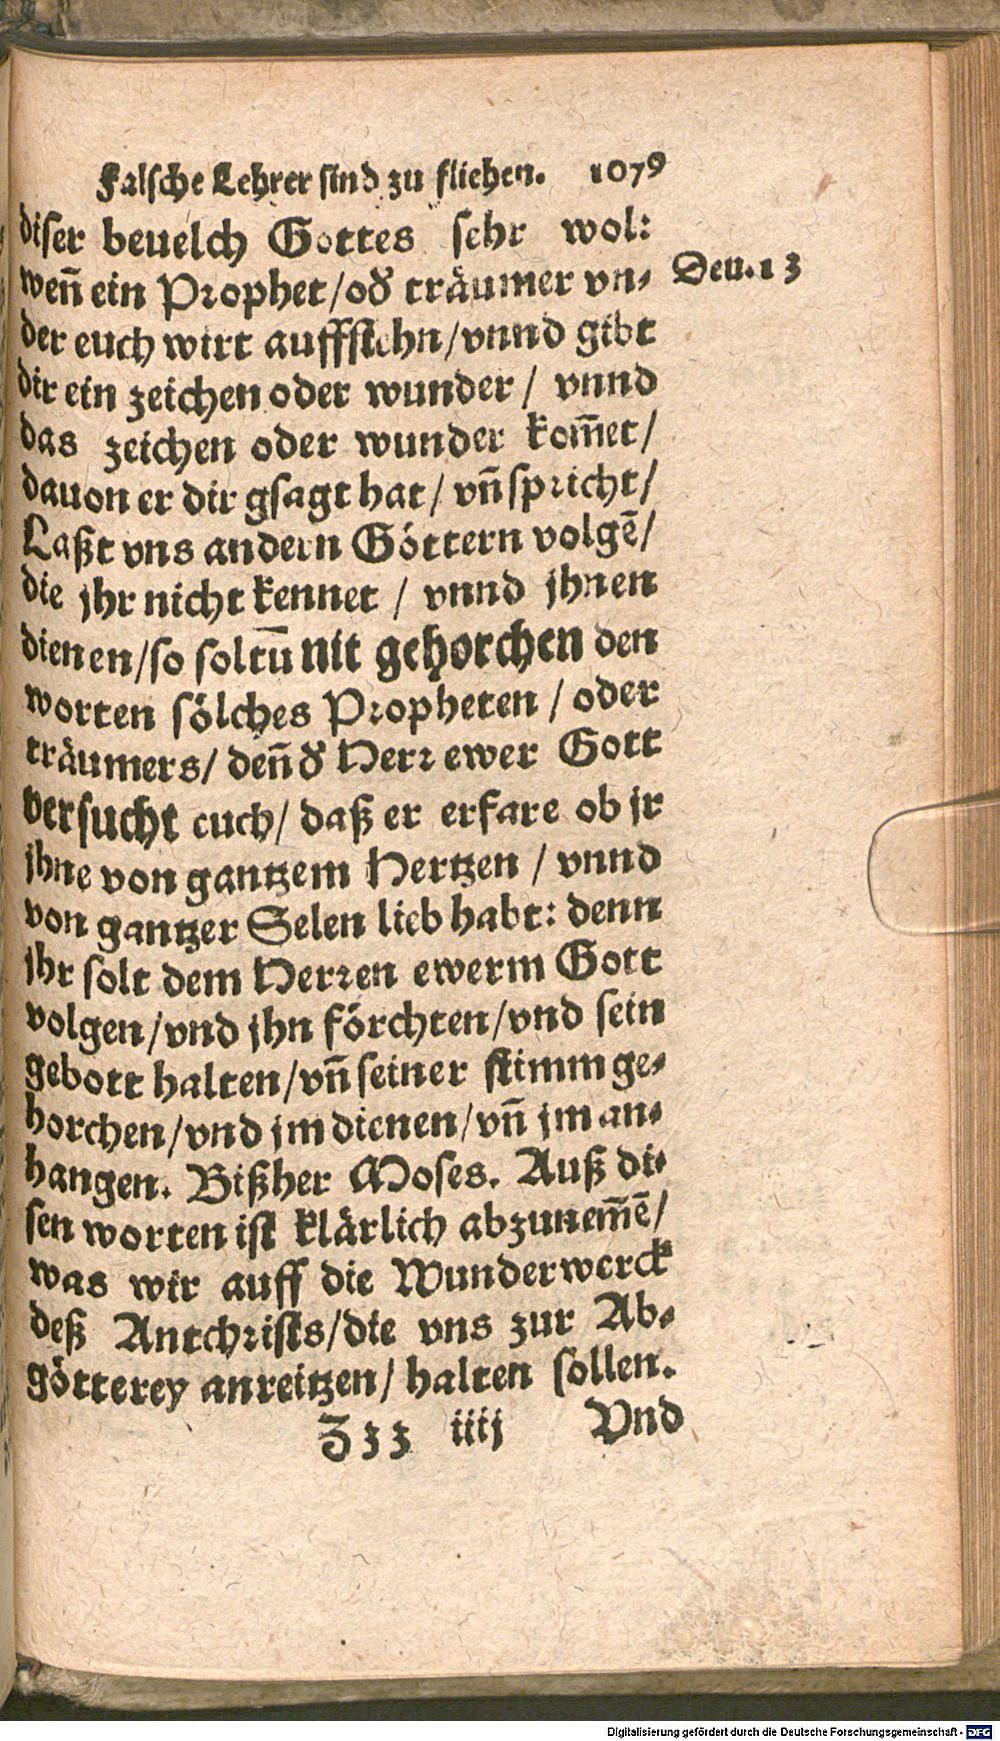 Falsche Lehrer sind zu fliehen. 1079
diser beuelch Gottes sehr wol:
Deu. 13
weñ ein Prophet/od' träumer vn-
der euch wirt auffstehn/vnnd gibt
dir ein zeichen oder wunder/ vnnd
das zeichen oder wunder kom̃et/
dauon er dir gsagt hat/ vñ spricht/
Laßt vns andern Göttern volgẽ/
die jhr nicht kennet / vnnd jhnen
dienen/so soltū nit gehorchen den
worten sölches Propheten / oder
träumers/ deñ d' Herr ewer Gott
versucht euch/ daß er erfare ob jr
jhne von gantzem Hertzen / vnnd
von gantzer Selen lieb habt: denn
jhr solt dem Herren ewerm Gott
volgen/vnd jhn förchten/vnd sein
gebott halten/vñ seiner stimm ge-
horchen/vnd jm dienen/vñ jm an-
hangen. Bißher Moses. Auß di-
sen worten ist klärlich abzunem̃ẽ/
was wir auff die Wunderwerck
deß Antchrists/die vns zur Ab-
götterey anreitzen/ halten sollen.
Zzz iiij Vnd
Digitalisierung gefördert durch die Deutsche Forschungsgemeinschaft - DFG